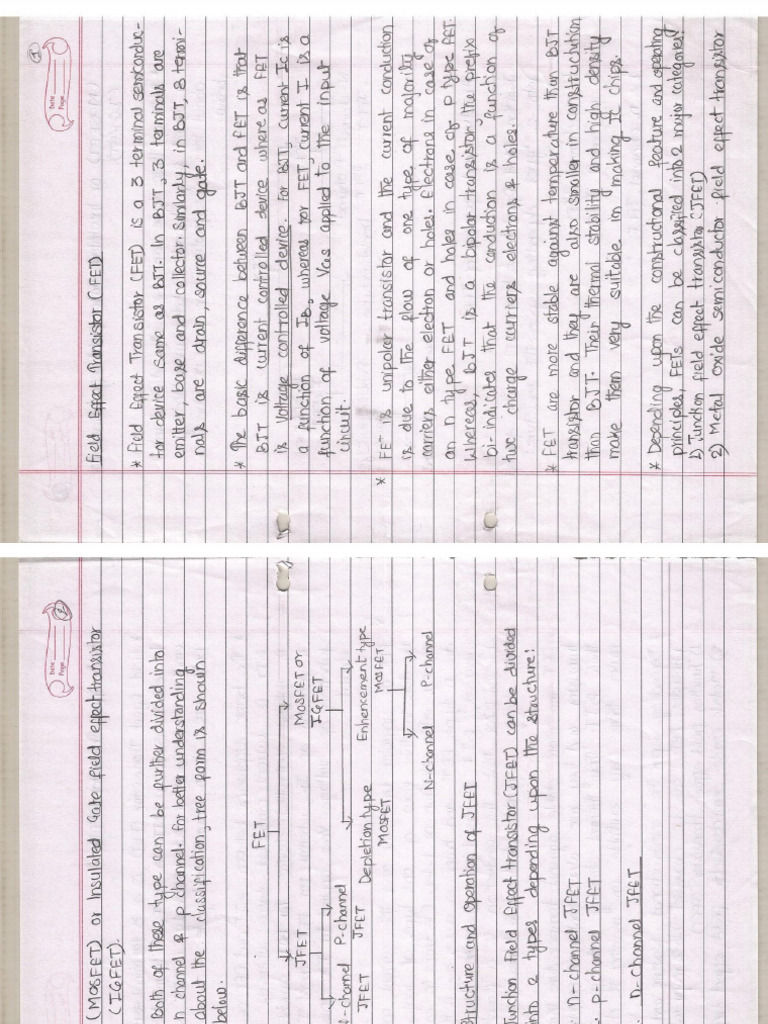 Date
Page
1
Field Effect Transistor (FET)
* Field Effect Transistor (FET) is a 3 terminal semiconduc-
tor device same as BJT. In BJT, 3 terminals are
emitter, base and collector. Similarly, in BJT, 3 termi-
nals are drain, source and gate.
* The basic difference between BJT and FET is that
BJT is current controlled device where as FET
is voltage controlled device. For BJT, current Ic is
a function of IB, whereas for FET, current I is a
function of voltage VGS applied to the input
circuit.
* FET is unipolar transistor and the current conduction
is due to the flow of one type of majority
carriers either electron or holes. Electrons in case of
an n type FET and holes in case of p type FET.
Whereas, BJT is a bipolar transistor, the prefix
bi- indicates that the conduction is a function of
two charge carriers electrons & holes.
* FET are more stable against temperature than BJT
transistor and they are also smaller in construction
than BJT. Their thermal stability and high density
make them very suitable in making IC chips.
* Depending upon the constructional feature and operating
principles, FETs can be classified into 2 major categories:
1) Junction field effect transistor (JFET)
2) Metal Oxide semiconductor field effect transistor
Date
Page
2
(MOSFET) or Insulated Gate field effect transistor
(IGFET).
Both of these type can be further divided into
n channel & p channel. For better understanding
about the classification, tree form is shown
below.
FET
JFET MOSFET or
IGFET
-channel P-channel Depletion type Enhencement type
JFET JFET MOSFET MOSFET
N-channel P-channel
Structure and Operation of JFET
Junction Field Effect transistor (JFET) can be divided
into 2 types depending upon the structure:
. n-channel JFET
. p-channel JFET
. n-channel JFET